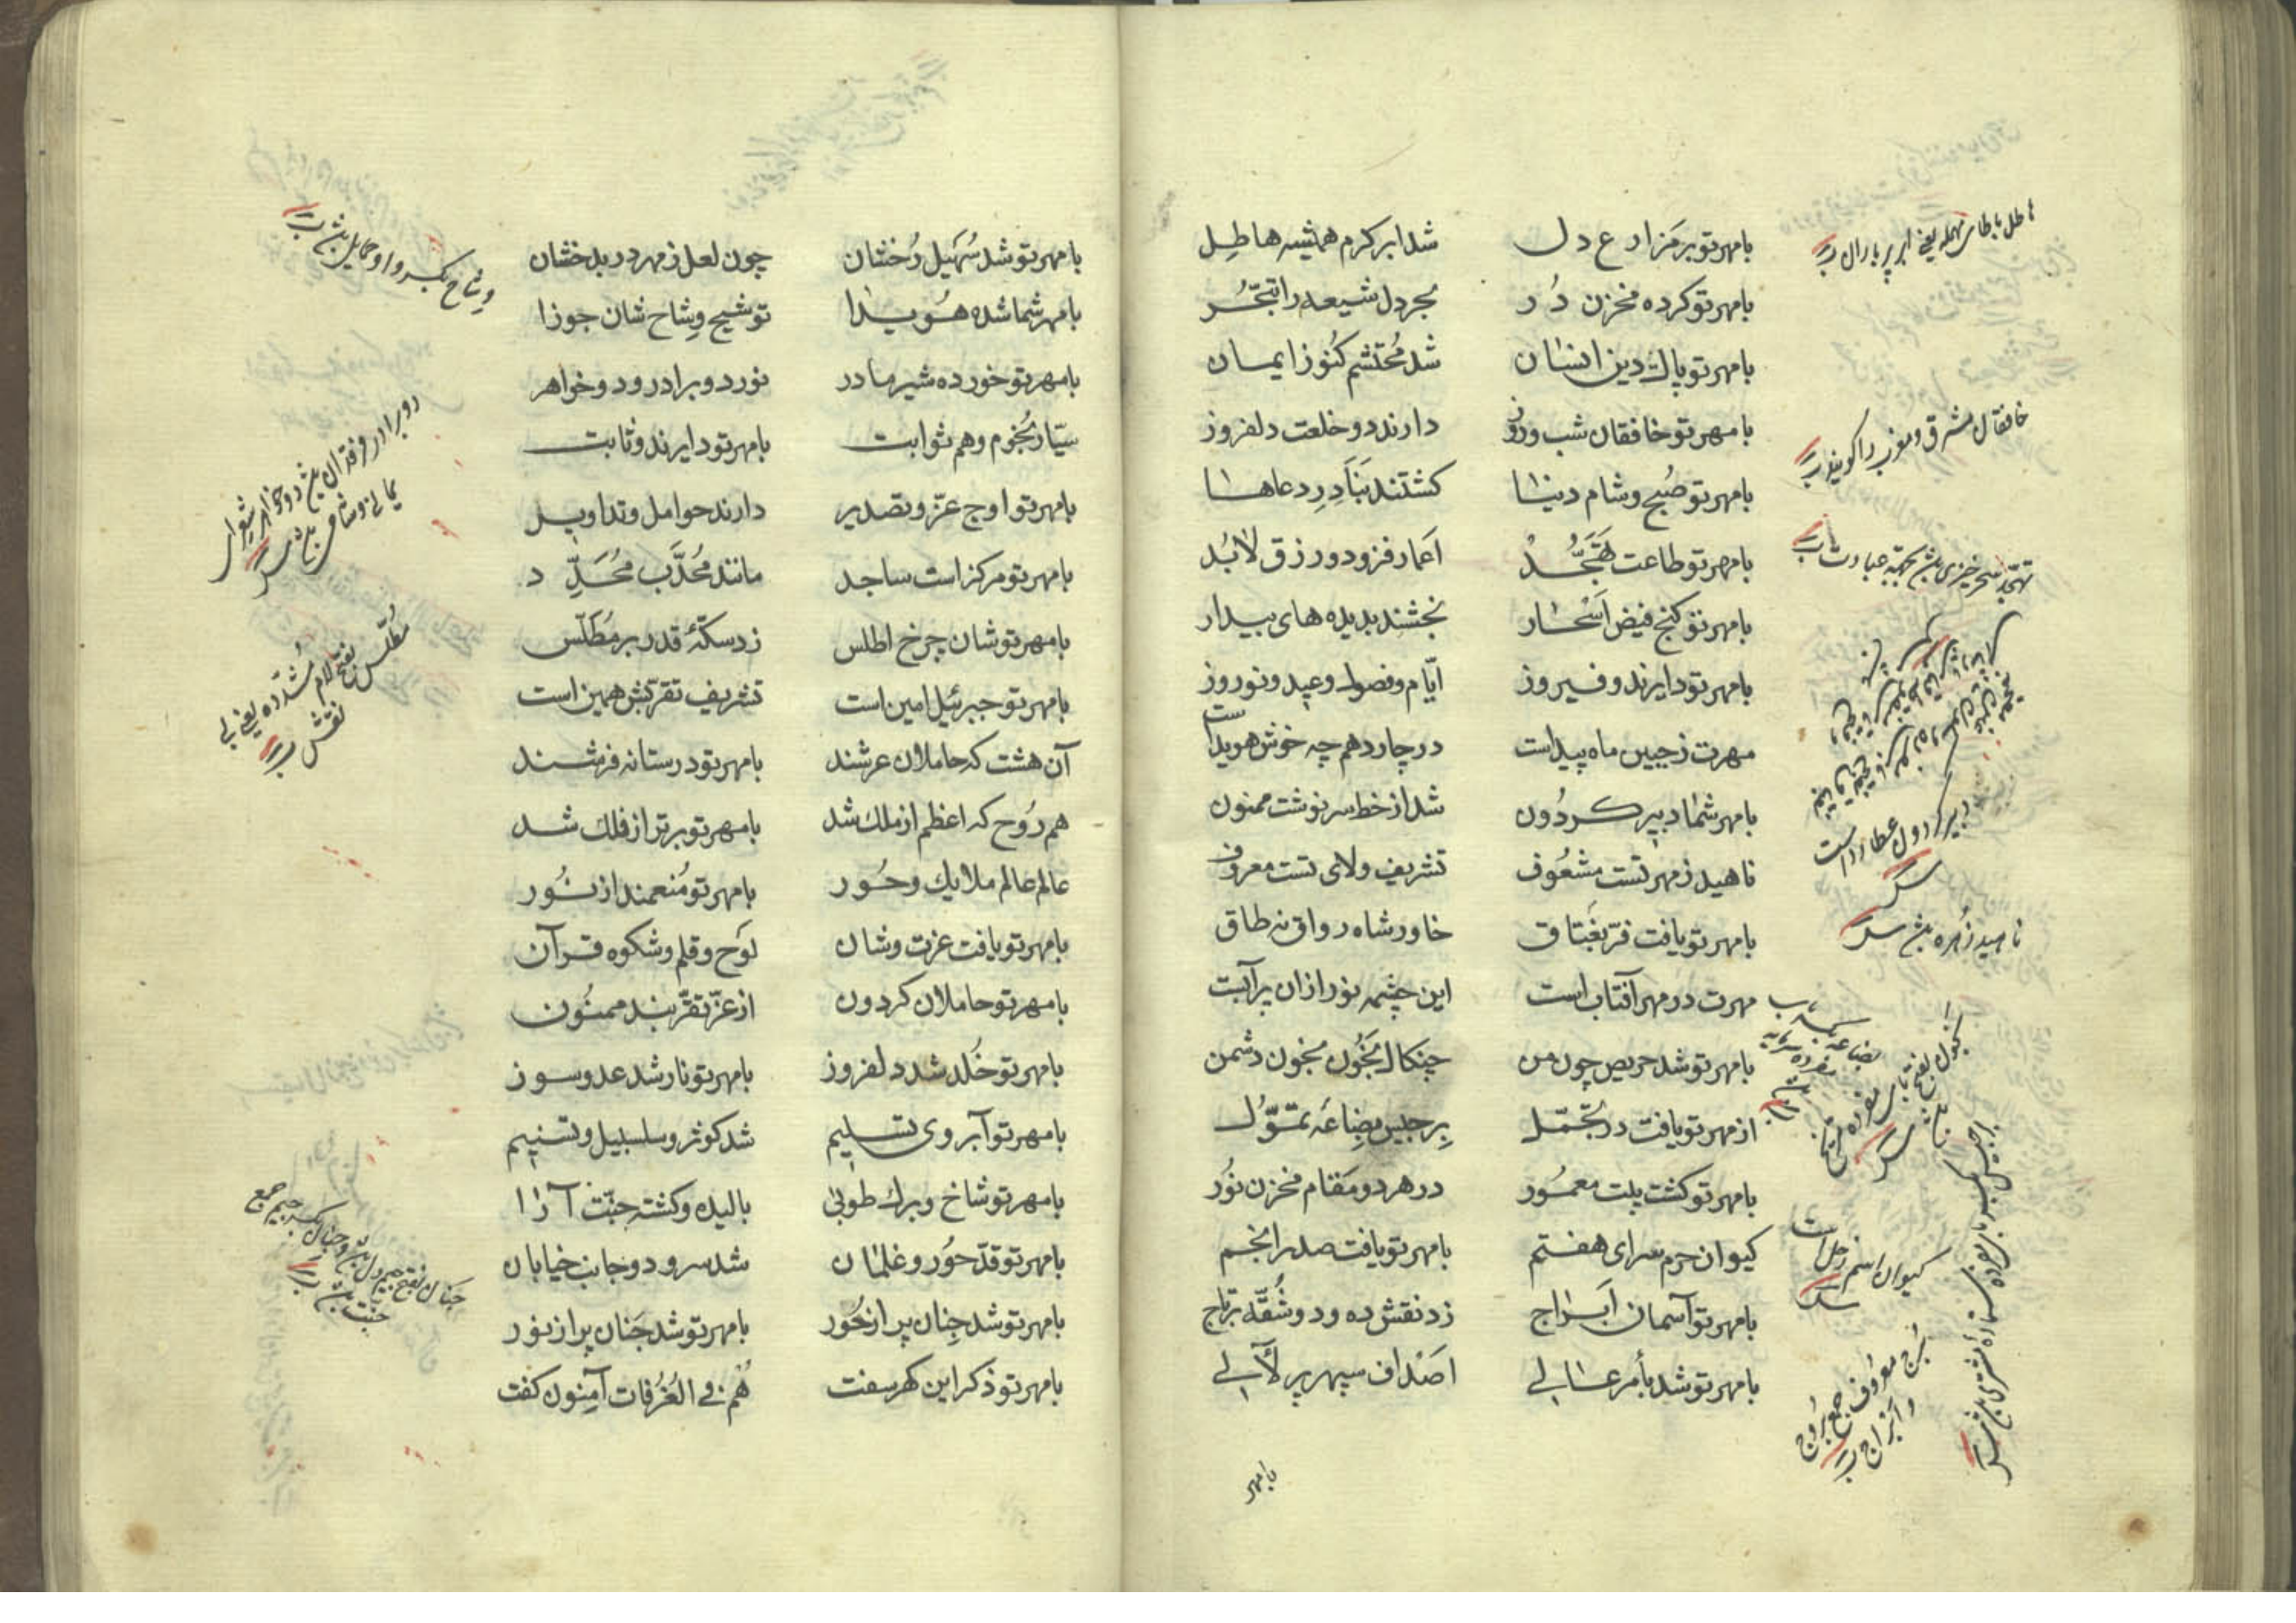 بامهر تو بر مزارع دل شد ابر کرم همیشه هاطل
بامهر تو کرده مخزن در بحر دل شیعه را تبحّر
بامهر تو پاك دین انسان شد محتشم کنوز ایمان
بامهر تو خافقان شب و روز دارند دو خلعت دلفروز
بامهر تو صبح و شام دینا کشتند بنادر دعاها
بامهر تو طاعت تهجّد اعمار فزود و رزق لابد
بامهر تو کنج فیض اسحار بخشند بدیده های بیدار
بامهر تو دایرند و فیروز ایّام و فصول و عید و نوروز
مهرت ز جبین ماه پیداست در چاردهم چه خوش هویداست
بامهر شما دبیر کردون شد از خط سرنوشت ممنون
ناهید ز مهر تست مشعوف تشریف ولای تست معروف
بامهر تو یافت فرّ بغتاق خاور شاه رواق نه طاق
مهرت در مهر آفتاب است این چشمه نور ازان پر آبت
بامهر تو شد حریص چون من چنکال بخون دشمن
از مهر تو یافت در تجمّل برجیس بضاعه تموّل
بامهر تو کشت بیت معمور در هر دو مقام مخزن نور
کیوان حرم سرای هفتم بامهر تو یافت صدر انجم
بامهر تو آسمان ابراج زد نقش ده و دو شقّه تاج
بامهر تو شد بأمر عالی اصداف سپهر پر لآلی
بامهر
هاطل با طای مهمله یعنی ابر پر باران
خافقان مشرق و مغرب را کویند
تهجّد سحر خیزی بجهت عبادت
دبیر کردون عطارد است
ناهید زهره
کیوان اسم زحل است
برج معروف جمع بروج و ابراج
بامهر تو شد سهیل رخشان چون لعل ز مهر در بدخشان
بامهر شما شده هویدا توشیح وشاح شان جوزا
بامهر تو خورده شیر مادر نور دو برادر و دو خواهر
سیّار نجوم و هم ثوابت بامهر تو دایرند و ثابت
بامهر تو اوج عزّ و تصدیر دارند حوامل و تداویر
بامهر تو مرکز است ساجد مانند محدّب محدّد
بامهر تو شان چرخ اطلس زد سکّهٔ قدر بر مطلّس
بامهر تو جبرئیل امین است تشریف تقرّبش همین است
آن هشت که حاملان عرشند بامهر تو در ستانه فرشند
هم روح که اعظم از ملك شد بامهر تو برتر از فلك شد
عالم عالم ملایك و حور بامهر تو منعمند از نور
بامهر تو یافت عزت و شان لوح و قلم و شکوه قرآن
بامهر تو حاملان کردون از عزّ تقرّبند ممنون
بامهر تو خلد شد دلفروز بامهر تو نار شد عدو سوز
بامهر تو آبروی تسلیم شد کوثر و سلسبیل و تسنیم
بامهر تو شاخ و برك طوبی بالیده و کشته جنّت آرا
بامهر تو قدّ حور و غلمان شد سرو دو جانب خیابان
بامهر تو شد جنان پر از حور بامهر تو شد جنان پر از نور
بامهر تو ذکر این کهر سفت هم فی الغرفات آمنون کفت
وشاح بکسر واو حمایل
مطلّس بفتح لام مشدّده یعنی بی نقش
جنان بفتح جیم دل و جنان بکسر جیم جمع جنت